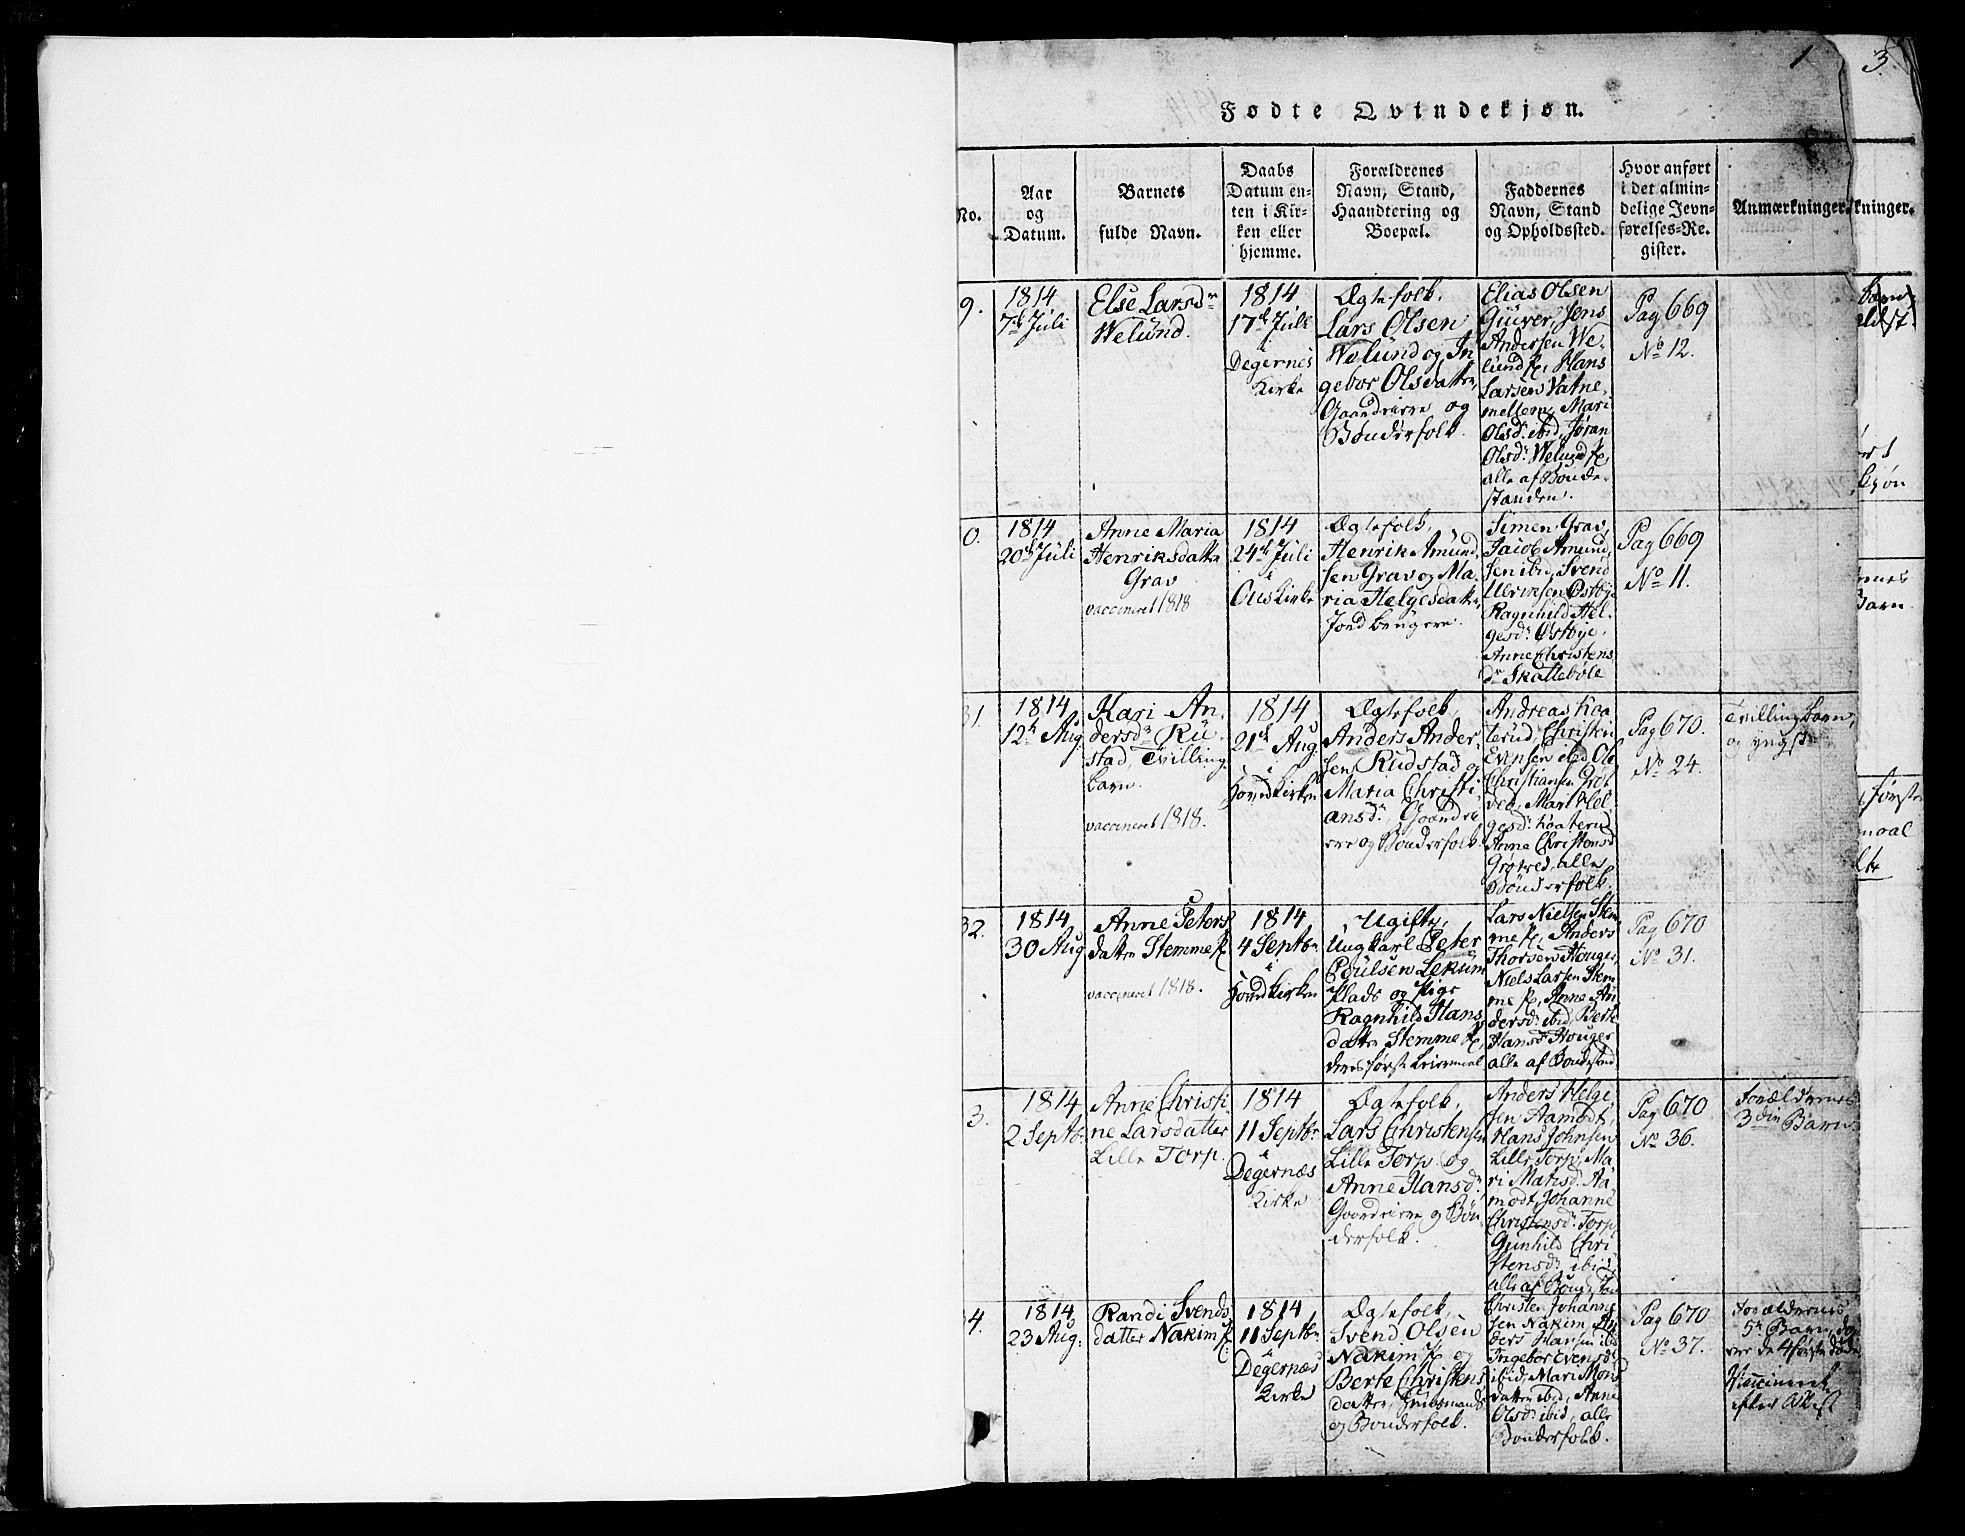 1
3
Fødte Qvindekjøn.
No.
Aar
og
Datum.
Barnets
fulde Navn.
Daabs
Datum en-
ten i Kir-
ken eller
hjemme.
Forældrenes
Navn, Stand,
Haandtering og
Boepæl.
Faddernes
Navn, Stand
og Opholdssted.
Hvor anført
i det almin-
delige Jevn-
førelses-Re-
gister.
Anmærkninger.
kninger.
9.
1814
7de Juli
Else Larsdr
Welund.
1814
17de Juli
i
Degernes
Kirke
Ægtefolk,
Lars Olsen
Welund og In
gebor Olsdatter,
Gaardeiere og
Bønderfolk.
Elias Olsen
Guiver, Jens
Andersen We-
lund Pl, Hans
Larsen Vatne-
mellem, Mari
Olsdr ibid, Jøran
Olsdr Welund Pl,
alle af Bonde-
standen.
Pag 669
No 12.
0.
1814
20de Juli
Anne Maria
Henriksdatter
Grav
vaccineret 1818
1814
24de Juli
i
Øus Kirke
Ægtefolk,
Henrik Amund
sen Grav og Ma-
ria Helgesdatter,
Jordbrugere.
Simen Grav,
Jacob Amund
sen ibid, Svend
Ulriksen Østbye
Ragnhild Hel-
gesdr Østbye,
Anne Christens
dr Skallebøle
Pag 669
No 11.
31.
1814
12te Aug
Kari An-
dersdr Ru-
stad, Tvilling
barn.
vaccineret 1818.
1814
21de Aug.
i
Hovedkirken
Ægtefolk,
Anders Ander-
sen Rudstad og
Maria Christi-
ansdr, Gaardei-
ere og Bønderfolk
Andreas Kaa-
terud, Christen
Evensen ibid, Ole
Christiansen Grøt
ved, Mari Hel-
gesdr Kaaterud
Anne Christensd
Grøtved, alle
Bønderfolk.
Pag 670.
No 24.
Tvillingbarn,
og yngst
32.
1814
30 Aug
Anne Peters
datter Stemme Pl
vaccineret 1818.
1814
4 Septbr
i
Hovedkirken
Ugifte,
Ungkarl Peter
Poulsen Leksum
Plads og Pige
Ragnhild Hans
datter Stemme Pl,
deres første Leiermaal
Lars Nielsen Stem
me Pl, Anders
Thorsen Houger,
Niels Larsen Stem
me Pl, Anne An
dersdr ibid, Berte
Hansdr Houger
alle af Bondestand
Pag 670
No 31.
3.
1814
2 Septbr
Anne Christi-
ne Larsdatter
Lille Torp.
1814
11 Septbr
i
Degernæs
Kirke
Ægtefolk,
Lars Christensen
Lille Torp og
Anne Hansdr
Gaardeiere og Bøn
derfolk.
Anders Helge
sen Aamodt,
Hans Johnsen
Lille Torp, Ma
ri Matisdr Aa
modt, Johanne
Christensdr Torp
Gunhild Chri
stensdr ibid,
alle af Bondestan
Pag 670
No 36.
Forældrenes
3die Barn.
4.
1814
23 Aug.
Randi Svends
datter Nakim Pl.
1814
11 Septbr
i
Degernæs
Kirke
Ægtefolk,
Svend Olsen
Nakim Pl og
Berte Christens
datter, Huusmand
og Bønderfolk.
Christen Johann
sen Nakim, An
ders Hansen ibid
Ingebor Evensdr
ibid, Mari Mons
datter ibid, Anne
Olsdr ibid, alle
Bønderfolk.
Pag 670
No 37.
Forældrenes
5te Barn, dog
ere de 4 første døde,
Vaccineret
efter Attest
barn
ældst
kjøn
Barn
første